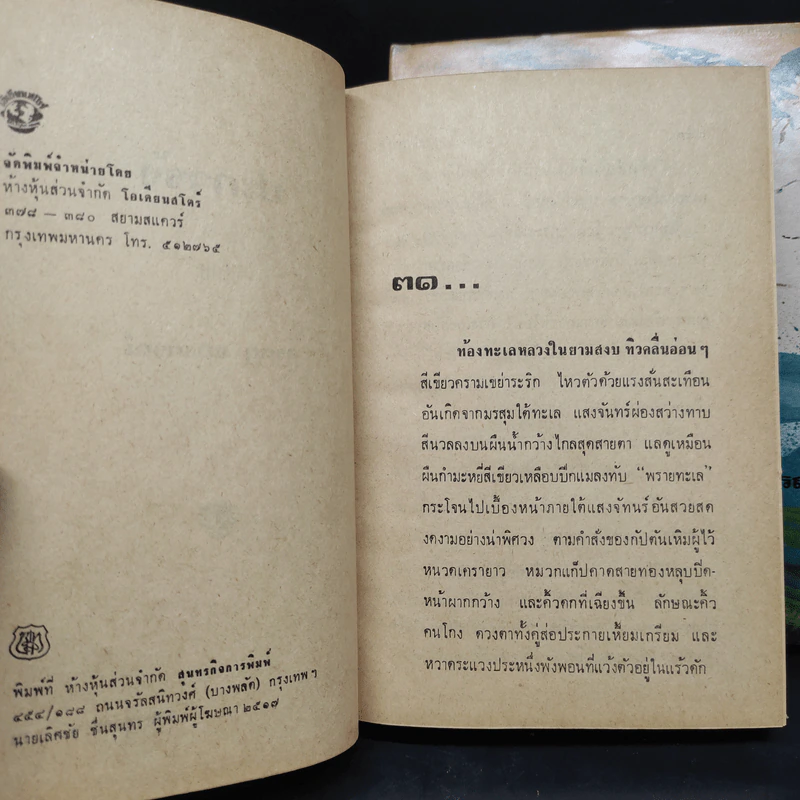 จัดพิมพ์จำหน่ายโดย
ห้างหุ้นส่วนจำกัด โอเดียนสโตร์
๓๗๘ — ๓๘๐ สยามสแควร์
กรุงเทพมหานคร โทร. ๕๑๒๗๖๕
พิมพ์ที่ ห้างหุ้นส่วนจำกัด สุนทรกิจการพิมพ์
๔๕๔/๑๘๘ ถนนจรัลสนิทวงศ์ (บางพลัด) กรุงเทพฯ
นายเลิศชัย ชื่นสุนทร ผู้พิมพ์ผู้โฆษณา ๒๕๑๗
๓๑...
ท้องทะเลหลวงในยามสงบ ทิวคลื่นอ่อนๆ
สีเขียวครามเขย่าระริก ไหวตัวด้วยแรงสั่นสะเทือน
อันเกิดจากมรสุมใต้ทะเล แสงจันทร์ผ่องสว่างทาบ
สีนวลลงบนผืนน้ำกว้างไกลสุดสายตา แลดูเหมือน
ผืนกำมะหยี่สีเขียวเหลือบปีกแมลงทับ “พรายทะเล”
กระโจนไปเบื้องหน้าภายใต้แสงจันทร์อันสวยสด
งดงามอย่างน่าพิศวง ตามคำสั่งของกัปตันเหิมผู้ไว้
หนวดเครายาว หมวกแก๊ปคาดสายทองหลุบปิด-
หน้าผากกว้าง และคิ้วดกที่เฉียงขึ้น ลักษณะคิ้ว
คนโกง ดวงตาทั้งคู่ส่อประกายเหี้ยมเกรียม และ
หวาดระแวงประหนึ่งพังพอนที่แว้งตัวอยู่ในแร้วดัก